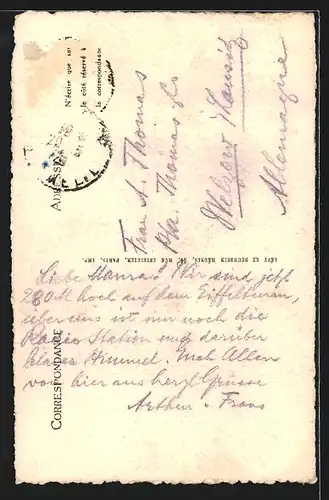 CORRESPONDANCE
ADRESSE
N'écrire que sur
le côté réservé à
la correspondance
Frau A. Thomas
Thomas
Welzow Lausitz
Allemagne
LÉVY ET NEURDEIN RÉUNIS, 44, RUE LETELLIER, PARIS, IMP.
Liebe Mama! Wir sind jetzt
280 M hoch auf dem Eiffelturm,
über uns ist nur noch die
Radio Station und darüber
blauer Himmel. Euch Allen
von hier aus herzl Grüsse
Arthur